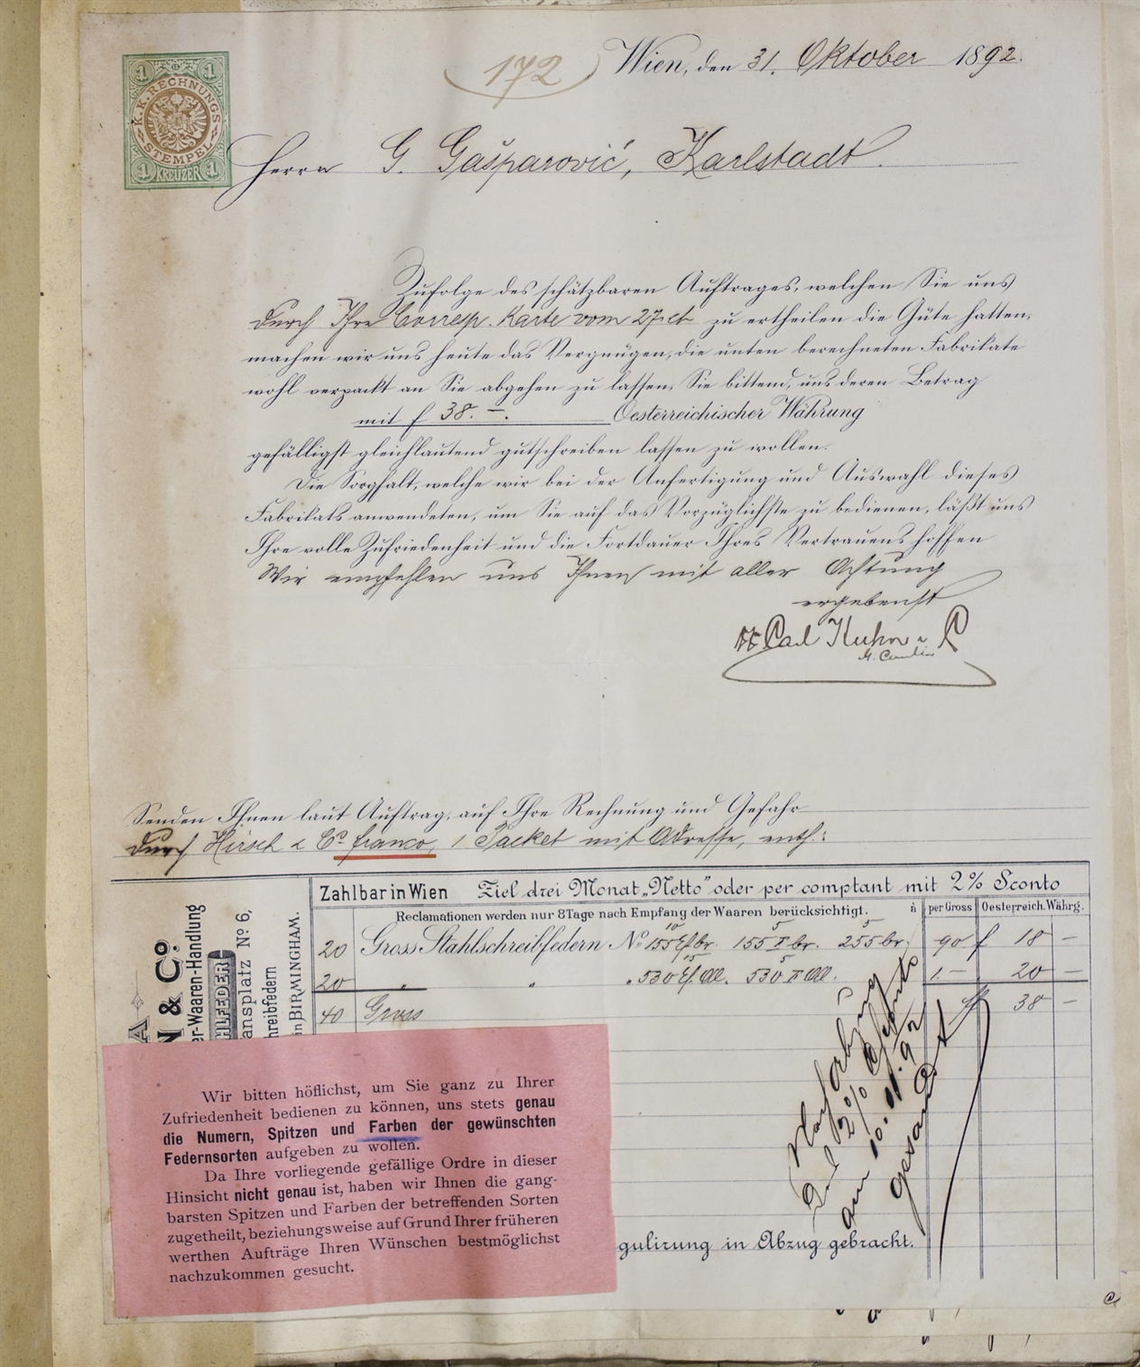 172
Wien, den 31. Oktober 1892.
1 1
K.K. RECHNUNGS
STEMPEL
1 KREUZER 1
Herrn G. Gašparović, Karlstadt.
Zufolge des schätzbaren Auftrages, welchen Sie uns
durch Ihre Corresp. Karte vom 27. ct zu ertheilen die Güte hatten,
machen wir uns heute das Vergnügen, die unten berechneten Fabrikate
wohl verpackt an Sie abgehen zu lassen, Sie bittend, uns deren Betrag
mit f 38.–. Oesterreichischer Währung
gefälligst gleichlautend gutschreiben lassen zu wollen.
Die Sorgfalt, welche wir bei der Anfertigung und Auswahl dieses
Fabrikats anwendeten, um Sie auf das Vorzüglichste zu bedienen, läßt uns
Ihre volle Zufriedenheit und die Fortdauer Ihres Vertrauens hoffen
Wir empfehlen uns Ihnen mit aller Achtung
ergebenst
Carl Kuhn & C
Senden Ihnen laut Auftrag, auf Ihre Rechnung und Gefahr
durch Hirsch & Co franco, 1 Packet mit Adresse, enth.:
Zahlbar in Wien Ziel drei Monat „Netto" oder per comptant mit 2% Sconto
Reclamationen werden nur 8 Tage nach Empfang der Waaren berücksichtigt. à per Gross Oesterreich. Währg.
20 Gross Stahlschreibfedern No 155 Ef br. 155 F br. 255 br. 90 f 18 –
20 „ „ „ 530 Ef 530 F 1.– 20 –
40 Gross f 38 –
N & Co.
er-Waaren-Handlung
HLFEDER
ansplatz No. 6,
hreibfedern
in BIRMINGHAM.
Nach Abzug
2% Sconto
am 10.11.92
gesandt
Wir bitten höflichst, um Sie ganz zu Ihrer
Zufriedenheit bedienen zu können, uns stets genau
die Numern, Spitzen und Farben der gewünschten
Federnsorten aufgeben zu wollen.
Da Ihre vorliegende gefällige Ordre in dieser
Hinsicht nicht genau ist, haben wir Ihnen die gang-
barsten Spitzen und Farben der betreffenden Sorten
zugetheilt, beziehungsweise auf Grund Ihrer früheren
werthen Aufträge Ihren Wünschen bestmöglichst
nachzukommen gesucht.
gulirung in Abzug gebracht.